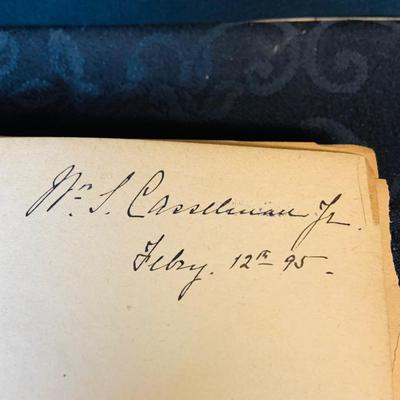 Wm S. Casselman Jr.
Febry. 12th 95.